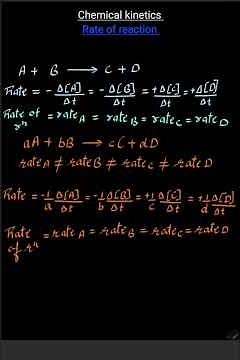 Chemical kinetics
Rate of reaction
A + B → C + D
Rate = -Δ[A]/Δt = -Δ[B]/Δt = +Δ[C]/Δt = +Δ[D]/Δt
Rate of rˣⁿ = rate A = rate B = rate C = rate D
aA + bB → cC + dD
rate A ≠ rate B ≠ rate C ≠ rate D
Rate = -1/a Δ[A]/Δt = -1/b Δ[B]/Δt = +1/c Δ[C]/Δt = +1/d Δ[D]/Δt
Rate of rˣⁿ = rate A = rate B = rate C = rate D